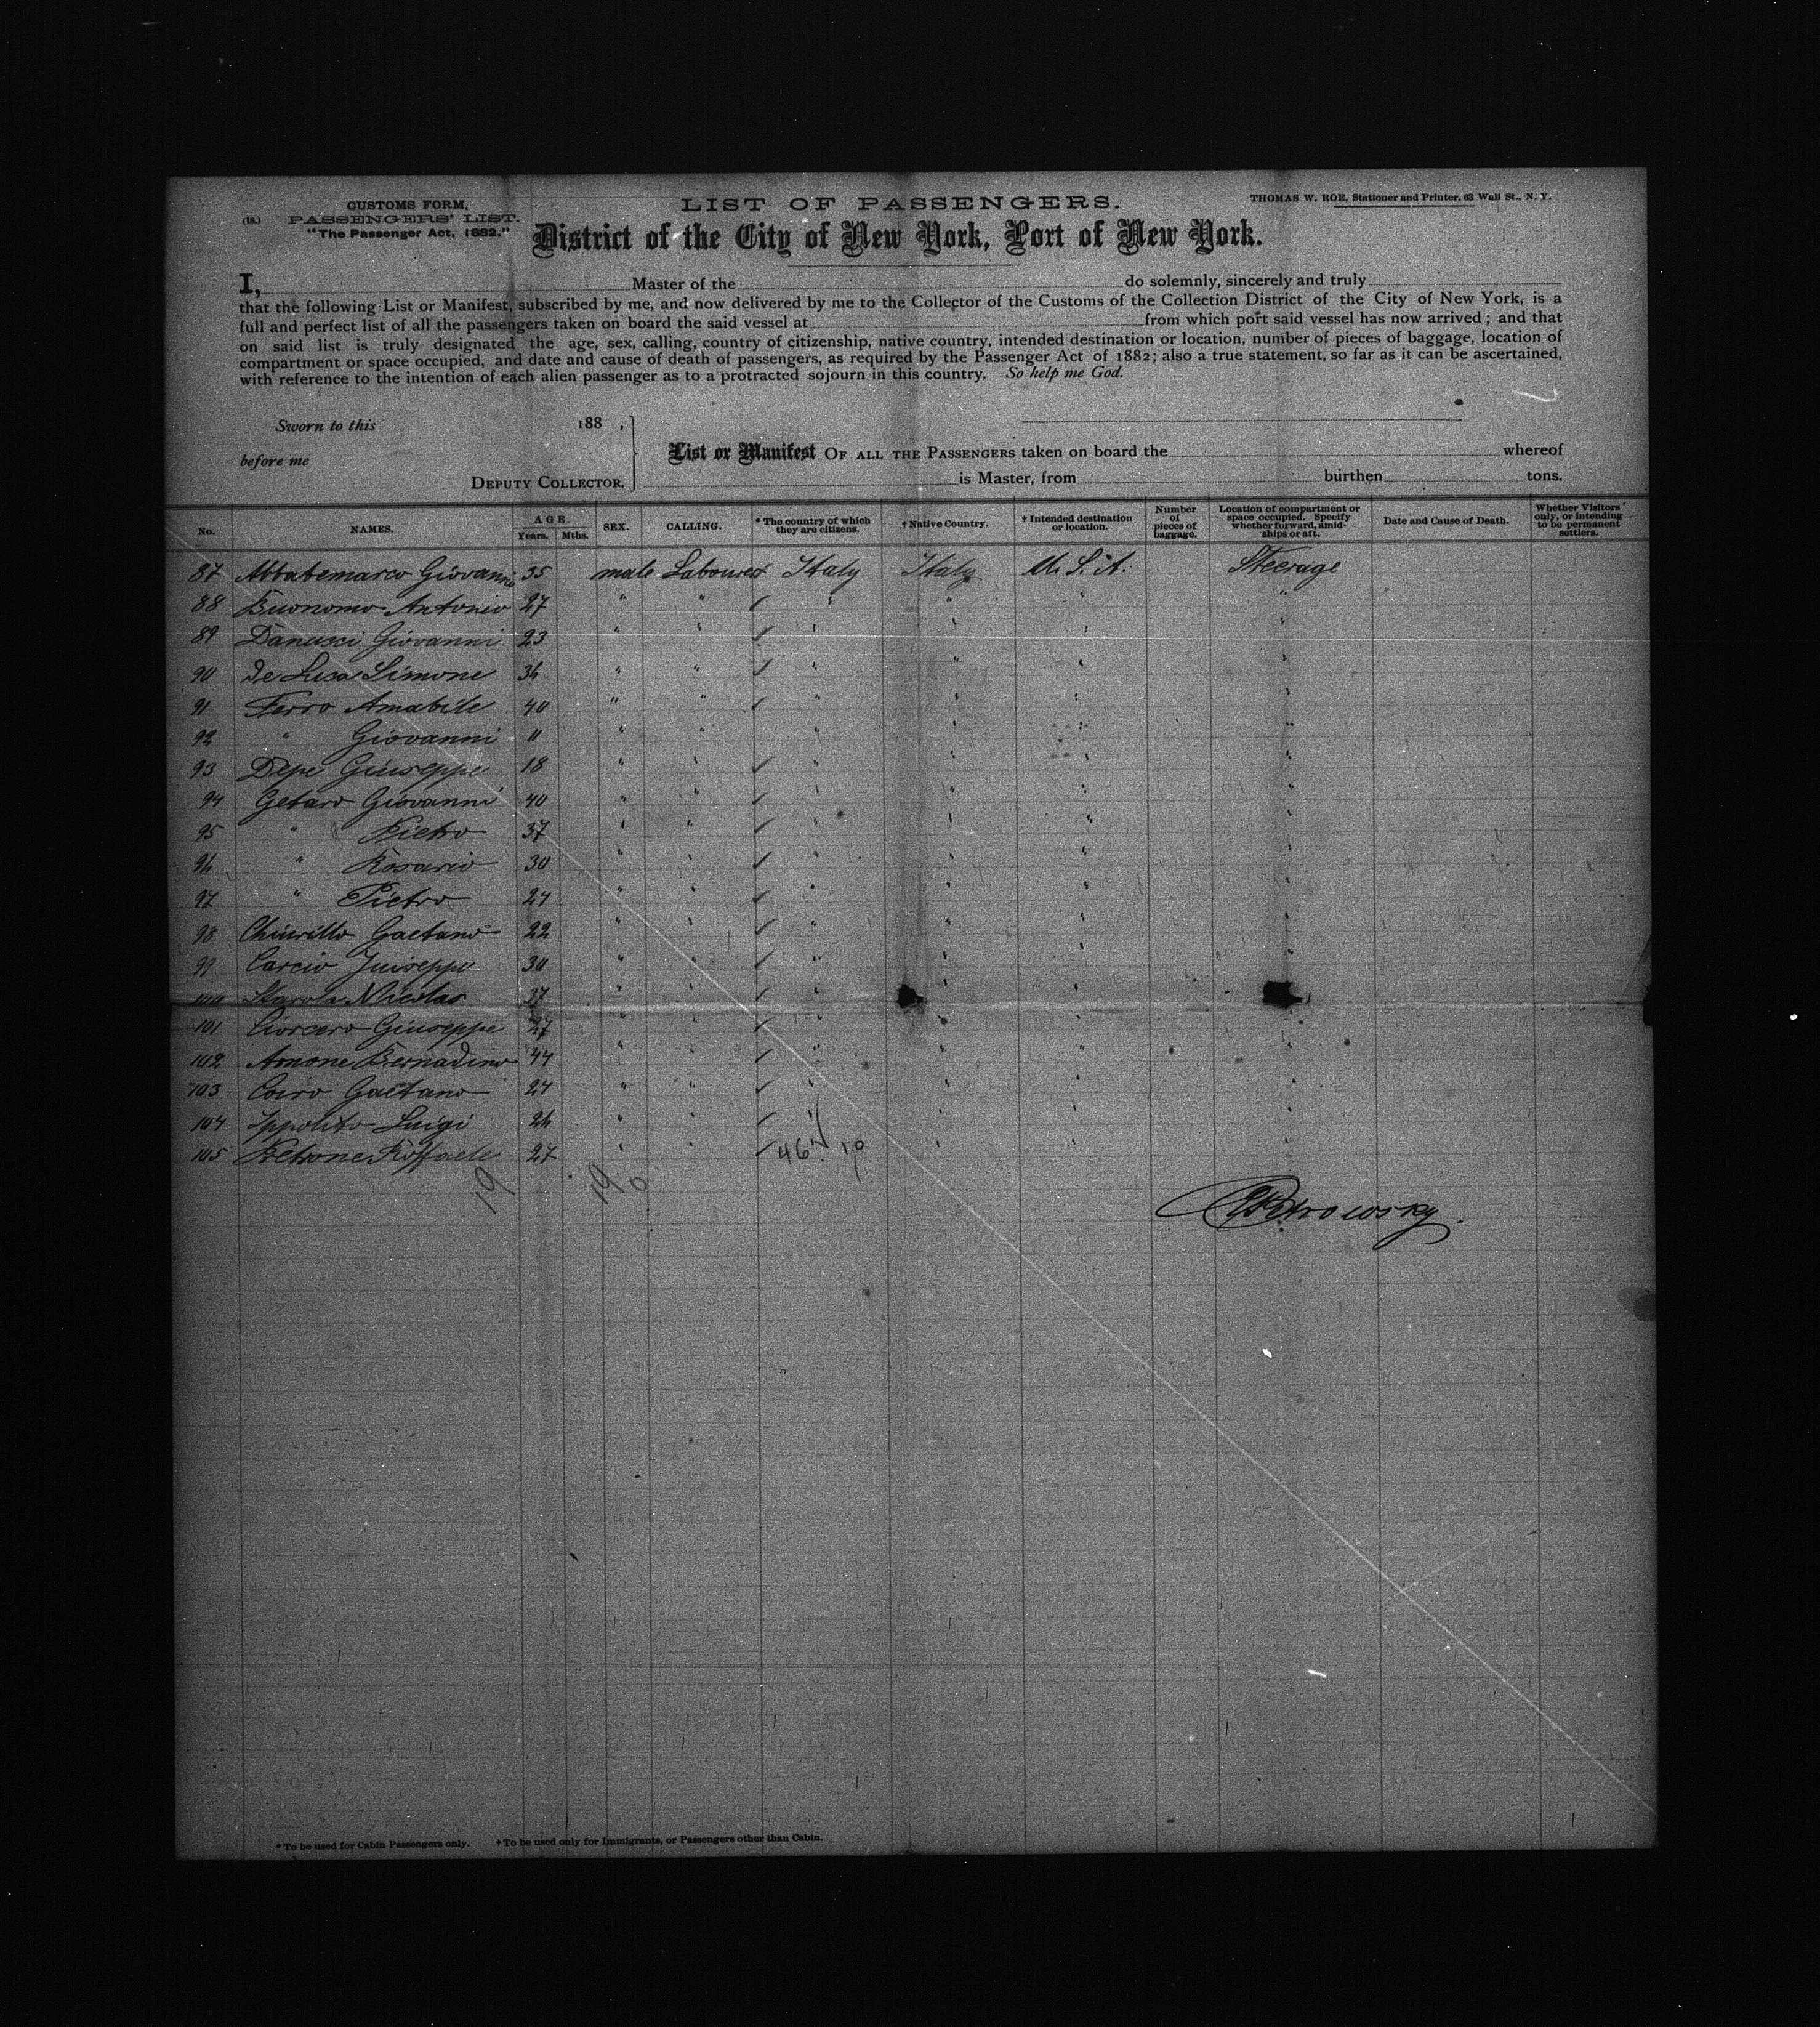 CUSTOMS FORM,
(18.) PASSENGERS' LIST.
"The Passenger Act, 1882."
LIST OF PASSENGERS.
THOMAS W. ROE, Stationer and Printer, 63 Wall St., N. Y.
District of the City of New York, Port of New York.
I, Master of the do solemnly, sincerely and truly
that the following List or Manifest, subscribed by me, and now delivered by me to the Collector of the Customs of the Collection District of the City of New York, is a
full and perfect list of all the passengers taken on board the said vessel at from which port said vessel has now arrived; and that
on said list is truly designated the age, sex, calling, country of citizenship, native country, intended destination or location, number of pieces of baggage, location of
compartment or space occupied, and date and cause of death of passengers, as required by the Passenger Act of 1882; also a true statement, so far as it can be ascertained,
with reference to the intention of each alien passenger as to a protracted sojourn in this country. So help me God.
Sworn to this 188 ,
before me
DEPUTY COLLECTOR.
List or Manifest OF ALL THE PASSENGERS taken on board the whereof
is Master, from burthen tons.
No. NAMES. AGE. Years. Mths. SEX. CALLING. * The country of which they are citizens. † Native Country. † Intended destination or location. Number of pieces of baggage. Location of compartment or space occupied. Specify whether forward, amidships or aft. Date and Cause of Death. Whether Visitors only, or intending to be permanent settlers.
87 Abbatemarco Giovanni 35 male Labourer Italy Italy U. S. A. Steerage
88 Buonomo Antonio 27 " " " " " "
89 Danusci Giovanni 23 " " " " " "
90 De Lusa Simone 36 " " " " " "
91 Ferro Amabile 40 " " " " " "
92 " Giovanni 11 " " " " " "
93 Depe Giuseppe 18 " " " " " "
94 Getaro Giovanni 40 " " " " " "
95 " Pietro 37 " " " " " "
96 " Rosario 30 " " " " " "
97 " Pietro 27 " " " " " "
98 Chiurillo Gaetano 22 " " " " " "
99 Carcio Guiseppe 30 " " " " " "
100 Nicolas 37 " " " " " "
101 Giuseppe 27 " " " " " "
102 Amone Bernadino 44 " " " " " "
103 Coiro Gaetano 27 " " " " " "
104 Ippolito Luigi 26 " " " " " "
105 Petrone Raffaele 27 " " " " "
46
19 19 0
Petrowsky.
* To be used for Cabin Passengers only. † To be used only for Immigrants, or Passengers other than Cabin.